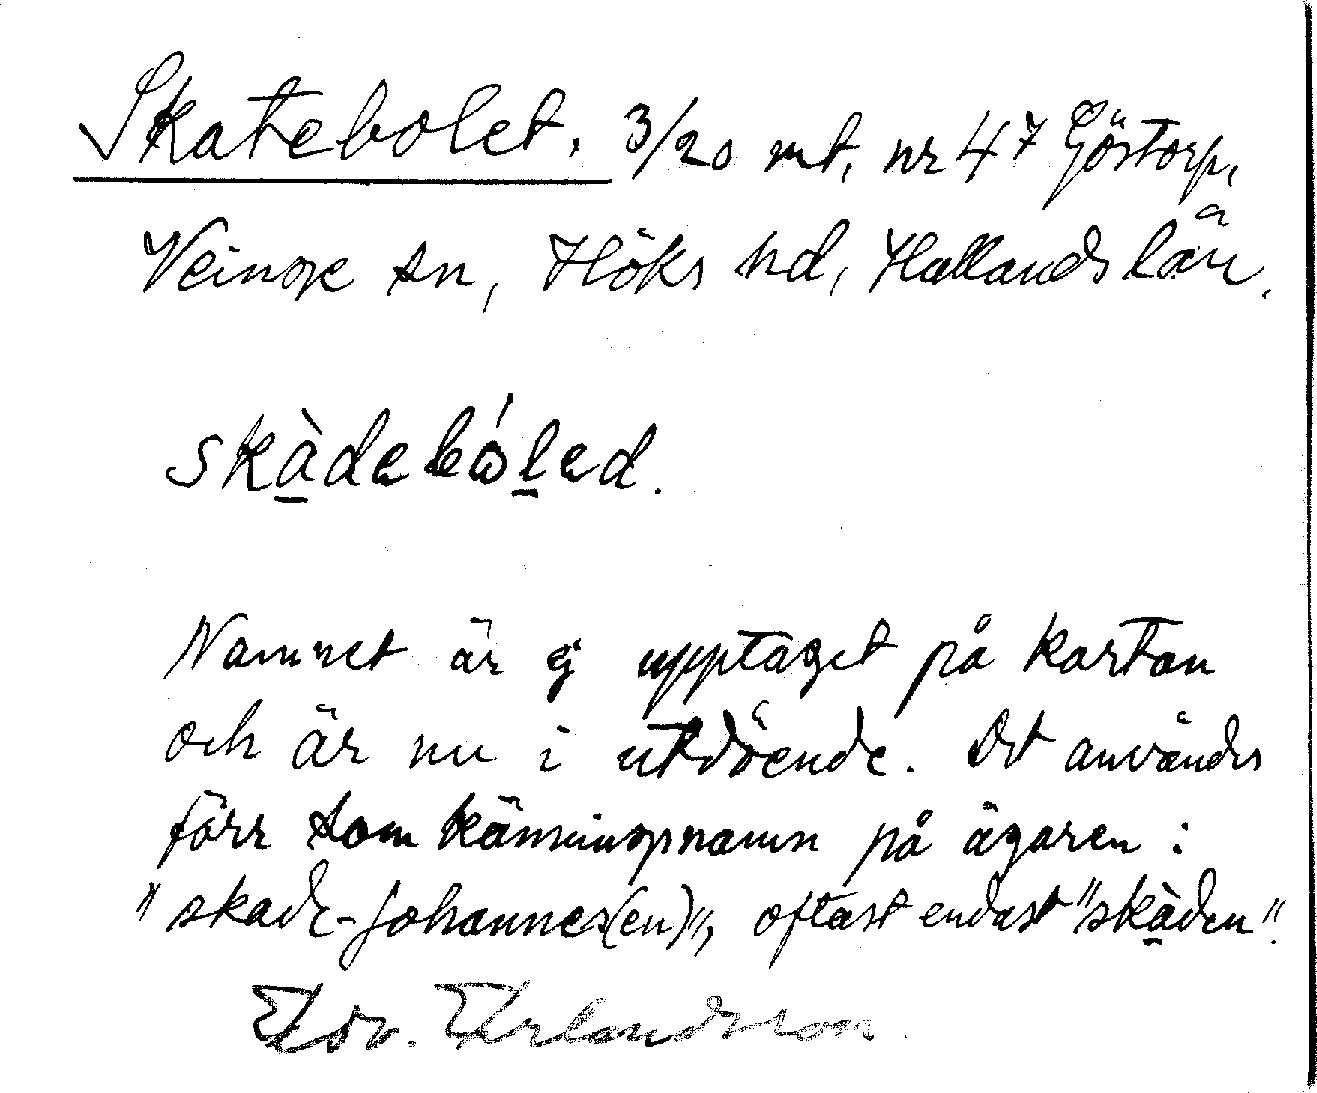 Skatebolet. 3/20 mt. nr 47 Göstorp,
Veinge sn, Höks hd, Hallands län.
skàdebóled.
Namnet är ej upptaget på kartan
och är nu i utdöende. Det användes
förr som känningsnamn på ägaren:
"skade-Johannes(en)", oftast endast "skàden".
Edv. Erlandsson.